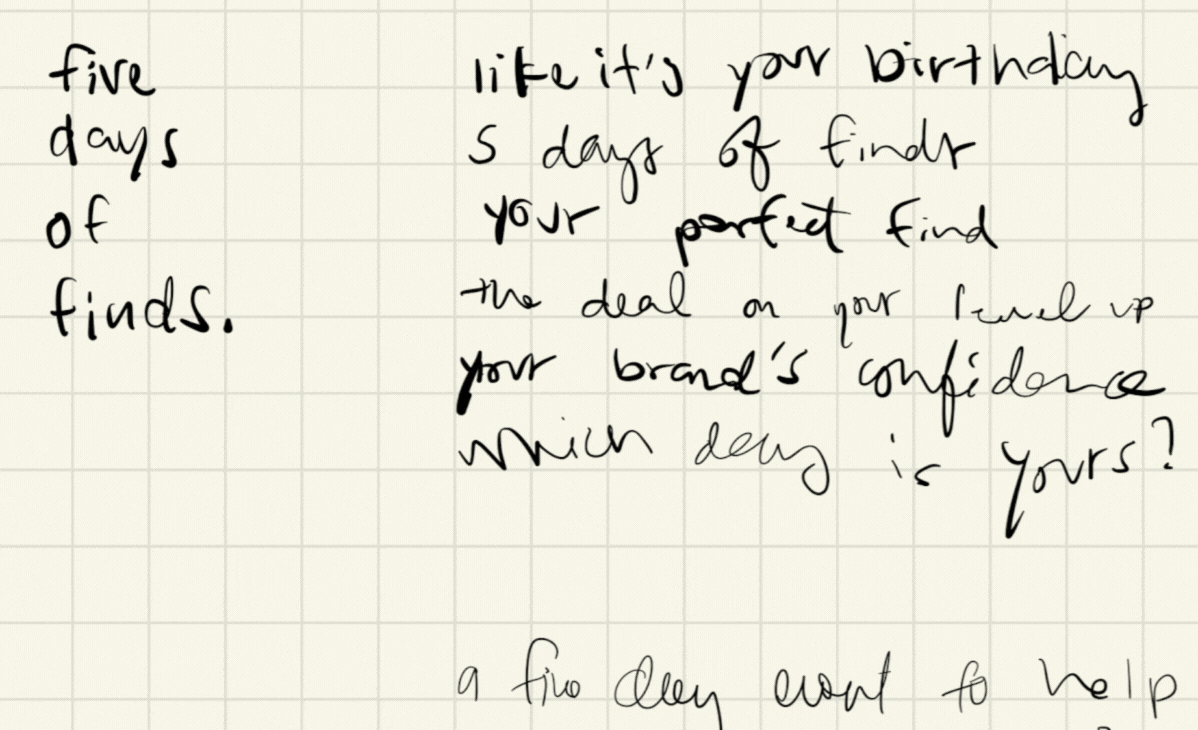 five
days
of
finds.
like it's your birthday
5 days of finds
your perfect find
the deal on your level up
your brand's confidence
which day is yours?
a five day event to help